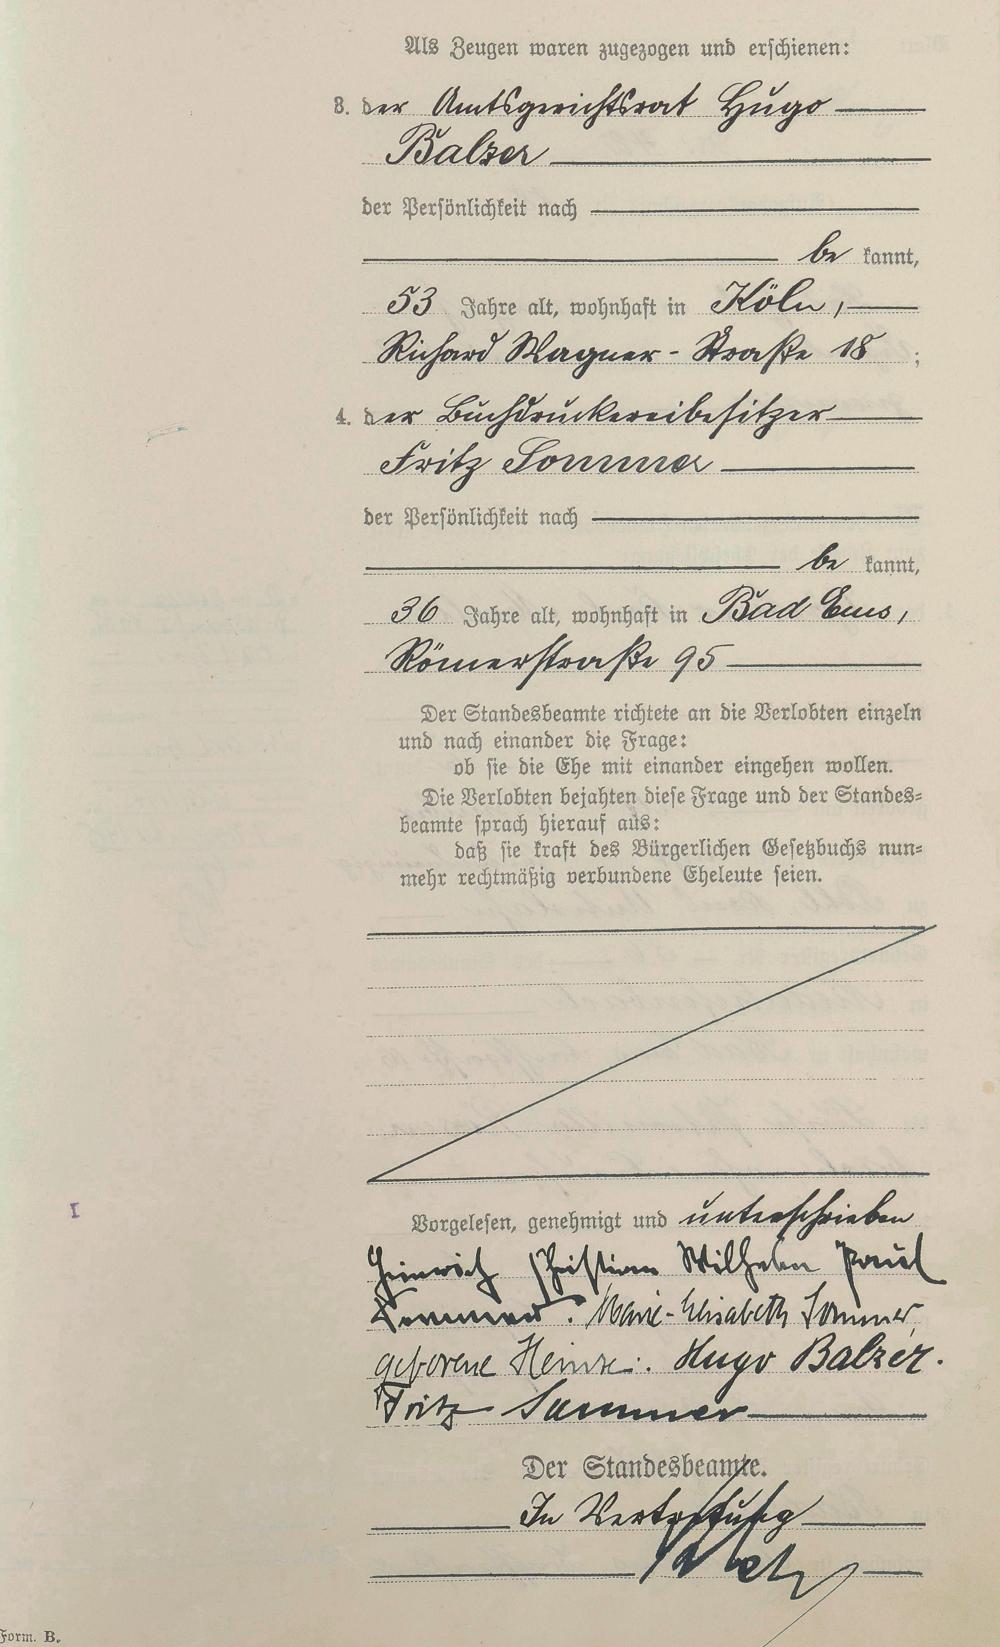 Als Zeugen waren zugezogen und erschienen:
3. der Amtsgerichtsrat Hugo
Balzer
der Persönlichkeit nach
be kannt,
53 Jahre alt, wohnhaft in Köln,
Richard Wagner-Straße 18 ;
4. der Buchdruckereibesitzer
Fritz Sommer
der Persönlichkeit nach
be kannt,
36 Jahre alt, wohnhaft in Bad Ems,
Römerstraße 95
Der Standesbeamte richtete an die Verlobten einzeln
und nach einander die Frage:
ob sie die Ehe mit einander eingehen wollen.
Die Verlobten bejahten diese Frage und der Standes=
beamte sprach hierauf aus:
daß sie kraft des Bürgerlichen Gesetzbuchs nun=
mehr rechtmäßig verbundene Eheleute seien.
Vorgelesen, genehmigt und unterschrieben
Heinrich Christian Wilhelm Paul
Sommer. Marie-Elisabeth Sommer,
geborene Heinze. Hugo Balzer.
Fritz Sommer
Der Standesbeamte.
In Vertretung
Form. B.
I